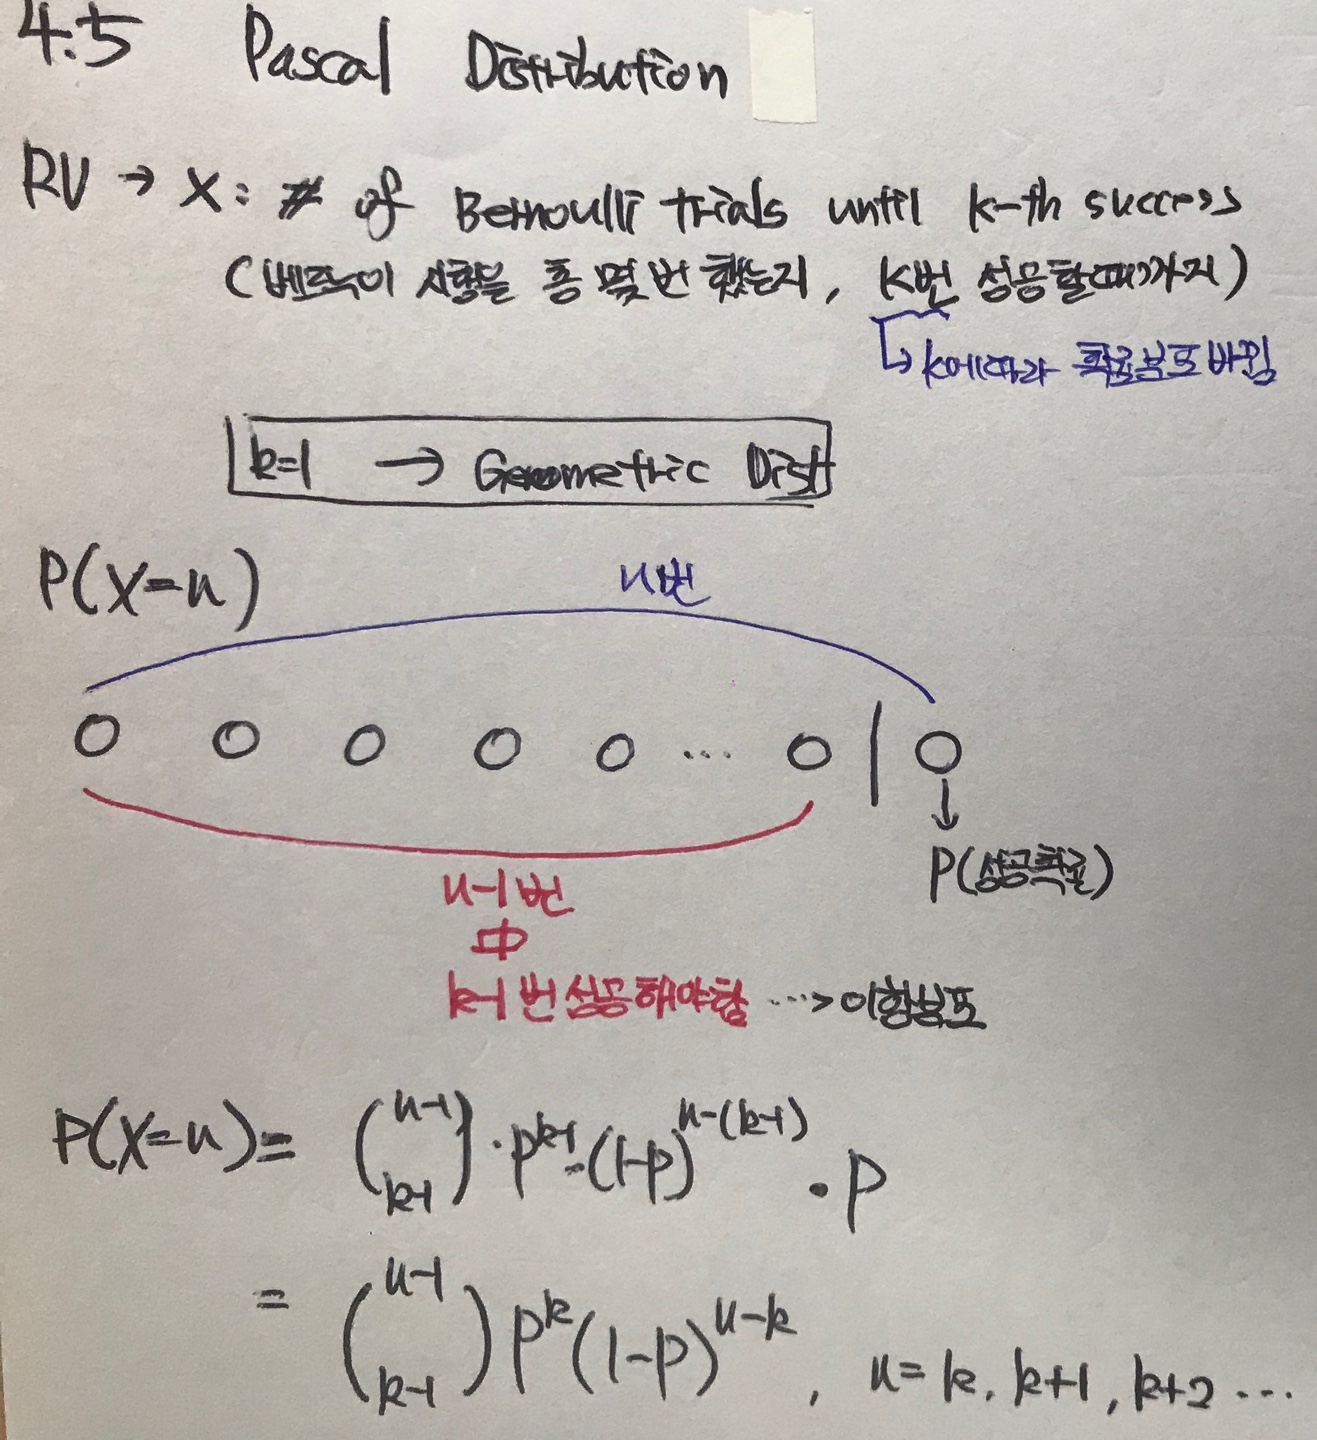 4.5 Pascal Distribution
RV → X: # of Bernoulli trials until k-th success
(베르누이 시행을 총 몇 번 했는지, k번 성공할때까지)
↳ k에따라 확률분포 바뀜
k=1 → Geometric Dist
P(X=n)
n번
○ ○ ○ ○ ○ ... ○ | ○
↓
P(성공확률)
n-1번
中
k-1번 성공해야함 ...> 이항분포
P(X=n)= (n-1 k-1)·p^{k-1}·(1-p)^{n-(k-1)}·p
= (n-1 k-1) p^k (1-p)^{n-k}, n= k, k+1, k+2 ...